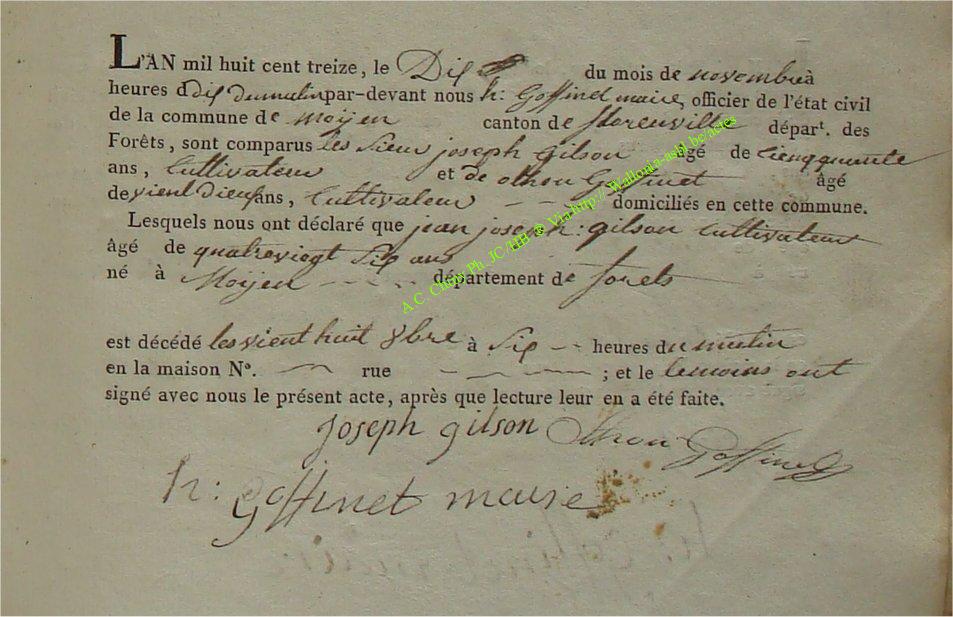 L'AN mil huit cent treize, le Dix du mois de novembre à
heures d dix du matin par-devant nous h: Goffinet maire, officier de l'état civil
de la commune de Moyen canton de florenville départ. des
Forêts, sont comparus les Sieur joseph Gilson agé de cienqquente
ans, Cultivateur et de othon Goffinet âgé
de vient dieux ans, Cultivateur domiciliés en cette commune.
Lesquels nous ont déclaré que jean joseph: gilson Cultivateur
âgé de quatreviegt Six ans
né à Moÿen département de forets
est décédé les vient huit 8bre à Six heures du matin
en la maison N°. rue ; et le temoins ont
signé avec nous le présent acte, après que lecture leur en a été faite.
joseph gilson Othon Goffinet
h: Goffinet maire
A.C. Chiny Ph. JC/HB @ Via http://Wallonia-asbl.be/actes